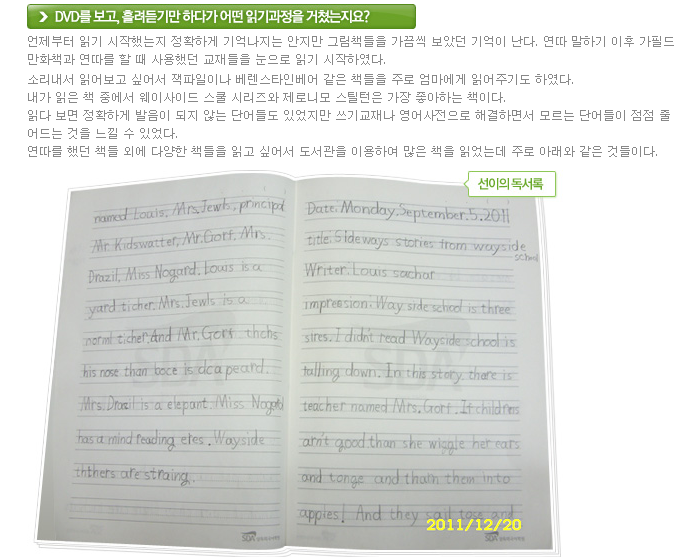 DVD를 보고, 흘려듣기만 하다가 어떤 읽기과정을 거쳤는지요?
언제부터 읽기 시작했는지 정확하게 기억나지는 안지만 그림책들을 가끔씩 보았던 기억이 난다. 연따 말하기 이후 가필드
만화책과 연따를 할 때 사용했던 교재들을 눈으로 읽기 시작하였다.
소리내서 읽어보고 싶어서 잭파일이나 베렌스타인베어 같은 책들을 주로 엄마에게 읽어주기도 하였다.
내가 읽은 책 중에서 웨이사이드 스쿨 시리즈와 제로니모 스틸턴은 가장 좋아하는 책이다.
읽다 보면 정확하게 발음이 되지 않는 단어들도 있었지만 쓰기교재나 영어사전으로 해결하면서 모르는 단어들이 점점 줄
어드는 것을 느낄 수 있었다.
연따를 했던 책들 외에 다양한 책들을 읽고 싶어서 도서관을 이용하여 많은 책을 읽었는데 주로 아래와 같은 것들이다.
선이의 독서록
named Louis, Mrs.Jewls, principal
Mr. Kidswatter, Mr.Gorf. Mrs.
Drazil, Miss Nogard. Louis is a
yard ticher. Mrs.Jewls is a
norml ticher. And Mr. Gorf thchs
his nose than boce is dcapeard.
Mrs. Drazil is a elepant. Miss Nogard
has a mind reading etes. Wayside
ththers are straing.
SDA
Date. Monday.September.5.2011
title: Sideways stories from wayside
school
Writer. Louis sachar
imprension: Way side school is three
sires. I didn't read Wayside school is
falling down. In this story there is
teacher named Mrs. Gorf. If childrens
arn't good than she wiggle her ears
and tonge and tharn them into
apples! And they sail tose and
2011/12/20
SDA